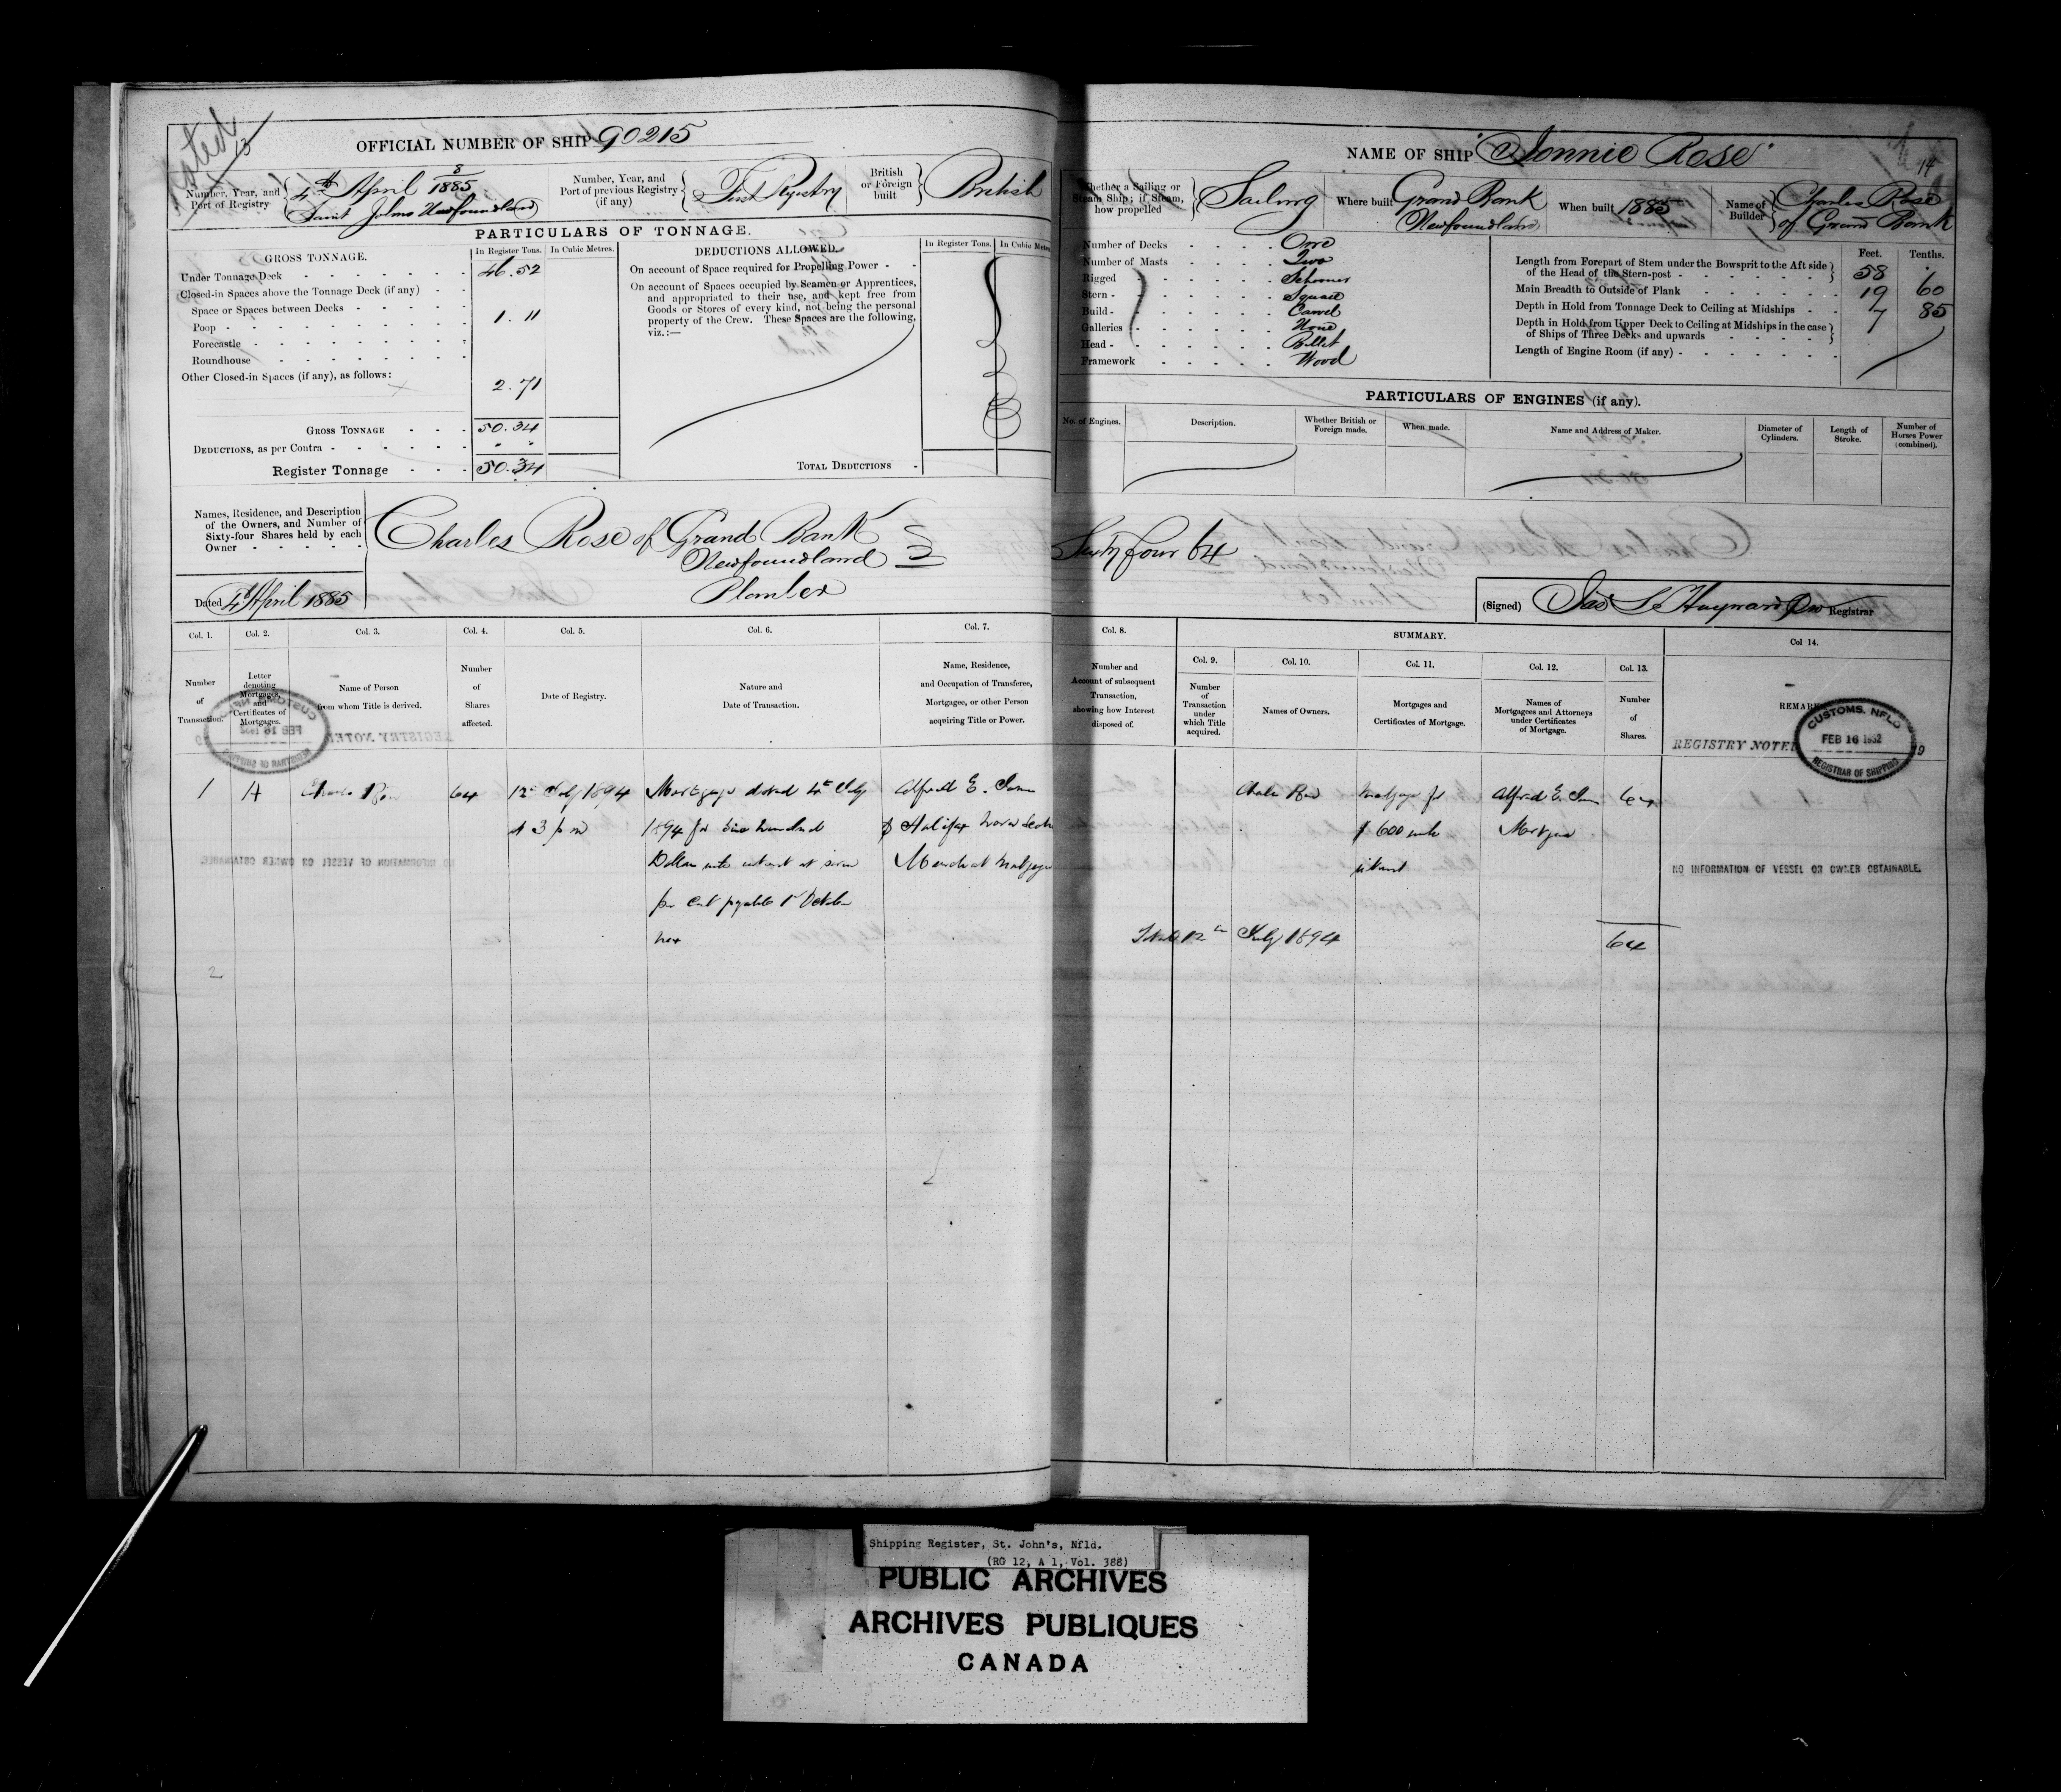 13
OFFICIAL NUMBER OF SHIP 90215
Number, Year, and Port of Registry
8
4th April 1885
Saint Johns Newfoundland
Number, Year, and Port of previous Registry (if any)
First Registry
British or Foreign built
British
PARTICULARS OF TONNAGE.
GROSS TONNAGE.
In Register Tons.
In Cubic Metres.
Under Tonnage Deck 46.52
Closed-in Spaces above the Tonnage Deck (if any)
Space or Spaces between Decks
1.11
Poop
Forecastle
Roundhouse
Other Closed-in Spaces (if any), as follows:
2.71
GROSS TONNAGE 50.34
DEDUCTIONS, as per Contra " "
Register Tonnage 50.34
DEDUCTIONS ALLOWED.
In Register Tons.
In Cubic Metres
On account of Space required for Propelling Power
On account of Spaces occupied by Seamen or Apprentices,
and appropriated to their use, and kept free from
Goods or Stores of every kind, not being the personal
property of the Crew. These Spaces are the following,
viz.:—
TOTAL DEDUCTIONS
Names, Residence, and Description
of the Owners, and Number of
Sixty-four Shares held by each
Owner
Charles Rose of Grand Bank
Newfoundland
Planter
Dated 4th April 1885
Col. 1.
Number of Transaction.
Col. 2.
Letter denoting Mortgages, and Certificates of Mortgages.
Col. 3.
Name of Person from whom Title is derived.
Col. 4.
Number of Shares affected.
Col. 5.
Date of Registry.
Col. 6.
Nature and Date of Transaction.
Col. 7.
Name, Residence, and Occupation of Transferee, Mortgagee, or other Person acquiring Title or Power.
1
A
Charles Rose
64
12th July 1894
at 3 p m
Mortgage dated 4th July
1894 for Six hundred
Dollars with interest at seven
per cent payable 1st October
next
Alfred E.
of Halifax Nova Scotia
Merchant Mortgagee
2
NAME OF SHIP "Nonnie Rose"
14
Whether a Sailing or Steam Ship; if Steam, how propelled
Sailing
Where built
Grand Bank
Newfoundland
When built 1885
Name of Builder
Charles Rose
of Grand Bank
Number of Decks One
Number of Masts Two
Rigged Schooner
Stern Square
Build Carvel
Galleries None
Head Billet
Framework Wood
Feet. Tenths.
Length from Forepart of Stem under the Bowsprit to the Aft side
of the Head of the Stern-post 58 .
Main Breadth to Outside of Plank 19 60
Depth in Hold from Tonnage Deck to Ceiling at Midships 7 85
Depth in Hold from Upper Deck to Ceiling at Midships in the case
of Ships of Three Decks and upwards
Length of Engine Room (if any)
PARTICULARS OF ENGINES (if any).
No. of Engines.
Description.
Whether British or Foreign made.
When made.
Name and Address of Maker.
Diameter of Cylinders.
Length of Stroke.
Number of Horses Power (combined).
Sixty four 64
(Signed) Jas S Hayward Registrar
Col. 8.
Number and Account of subsequent Transaction, showing how Interest disposed of.
SUMMARY.
Col. 9.
Number of Transaction under which Title acquired.
Col. 10.
Names of Owners.
Col. 11.
Mortgages and Certificates of Mortgage.
Col. 12.
Names of Mortgagees and Attorneys under Certificates of Mortgage.
Col. 13.
Number of Shares.
Col 14.
Charles Rose
Mortgage for
$ 600 with
interest
Alfred E.
Mortgagee
64
12th July 1894
64
REGISTRY NOTED
CUSTOMS. NFLD
FEB 16 1932
REGISTRAR OF SHIPPING
19
NO INFORMATION OF VESSEL OR OWNER OBTAINABLE.
Shipping Register, St. John's, Nfld.
(RG 12, A 1, Vol. 388)
PUBLIC ARCHIVES
ARCHIVES PUBLIQUES
CANADA